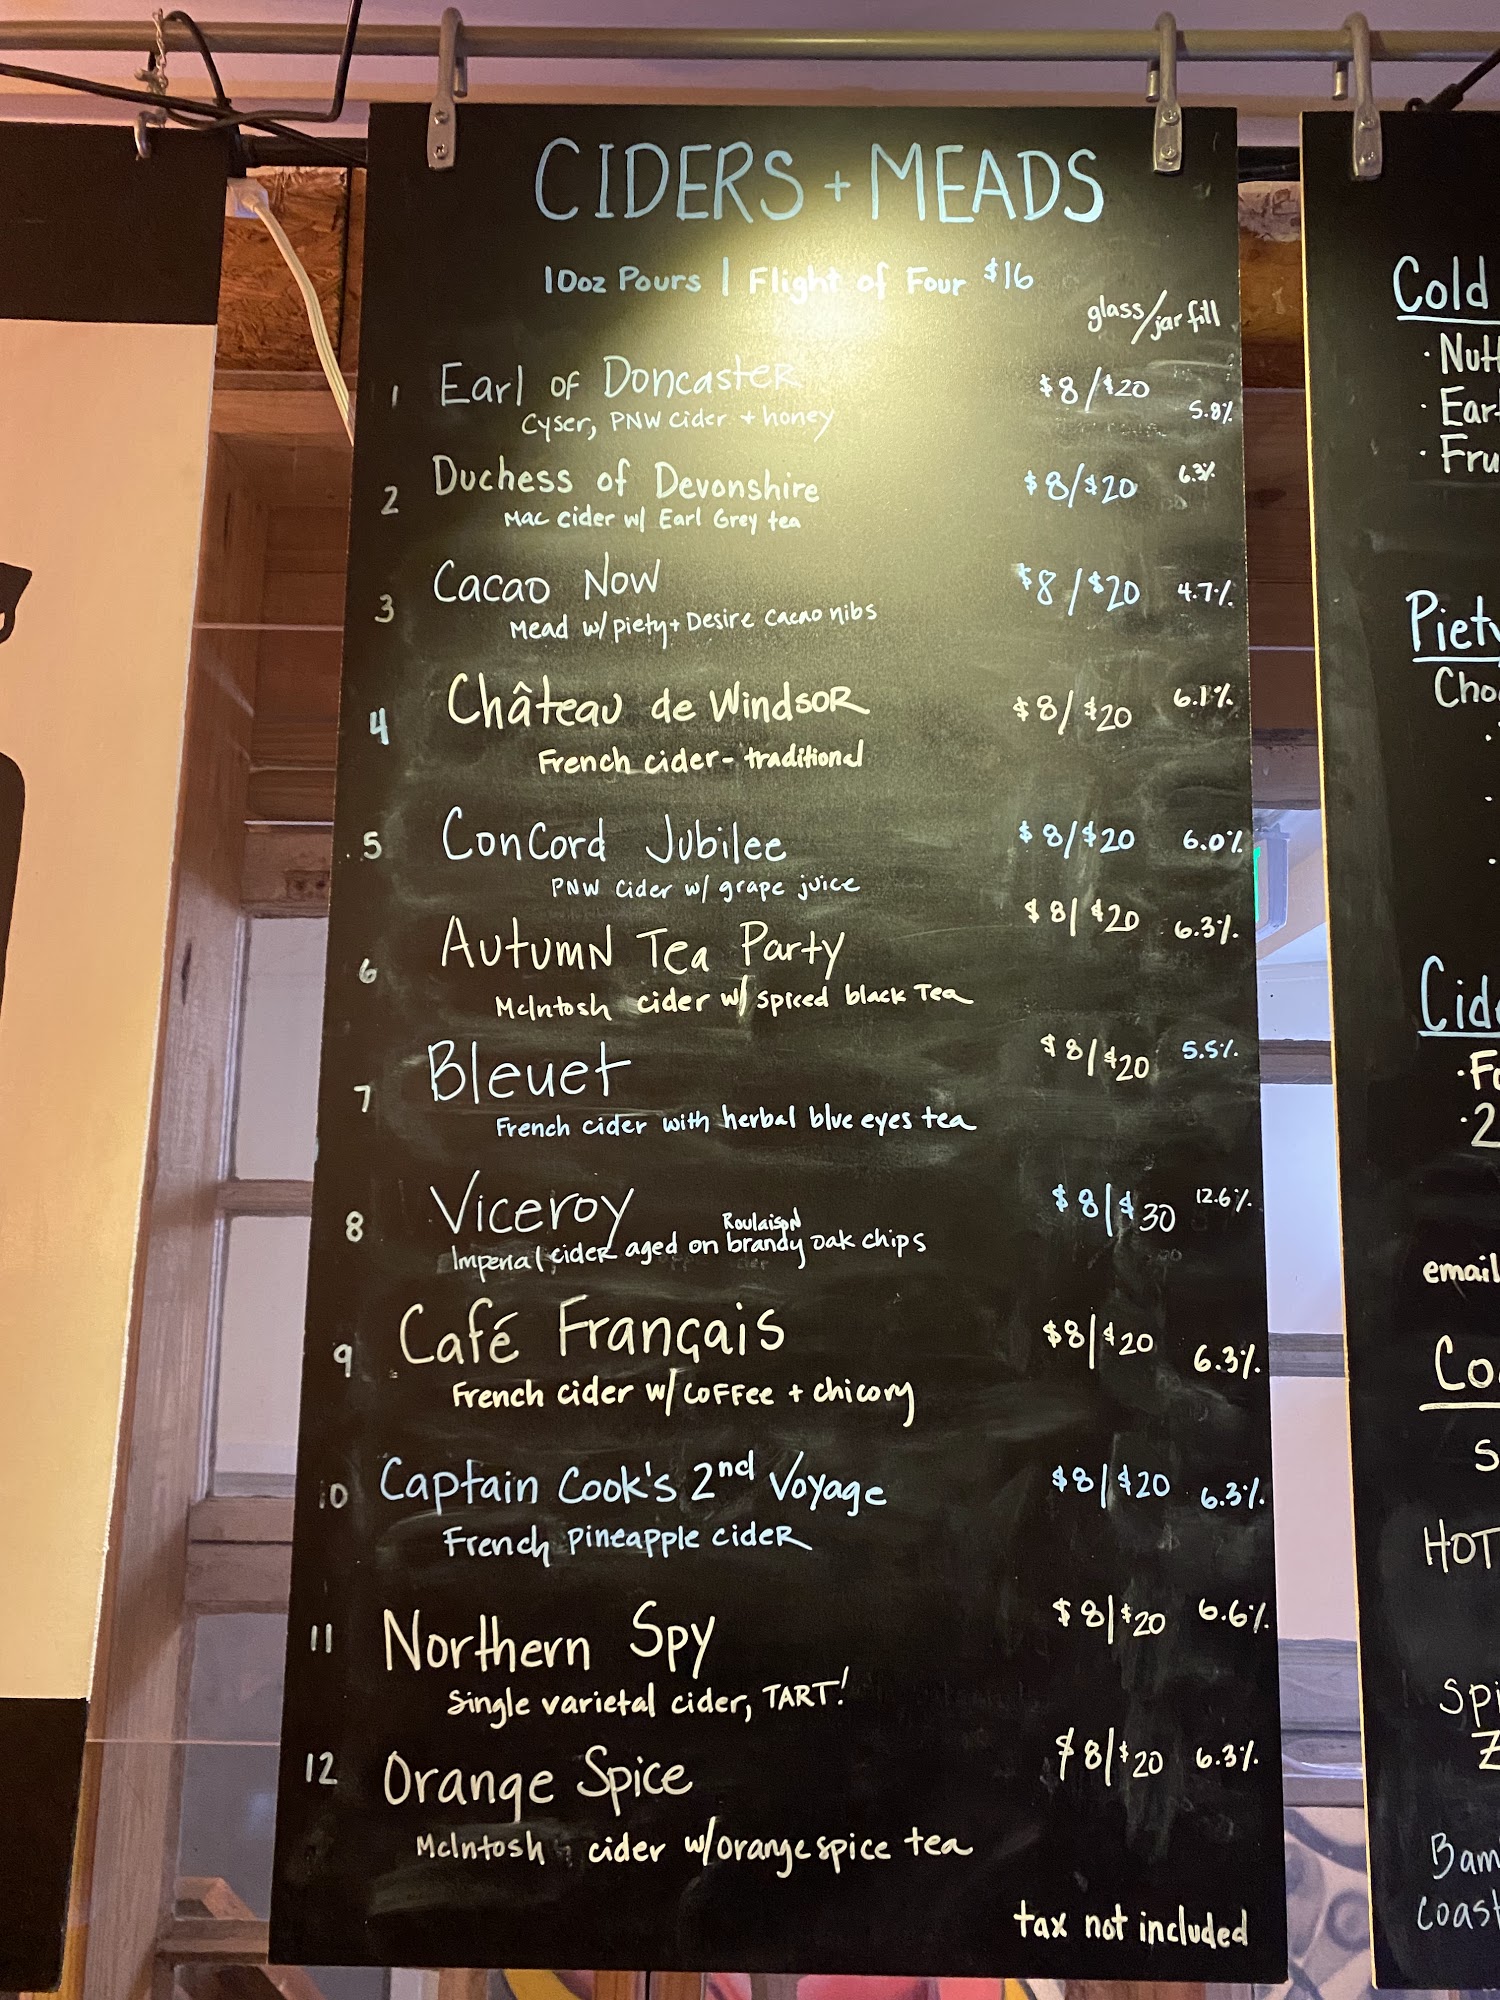 CIDERS + MEADS
10oz Pours | Flight of Four $16
glass/jar fill
1 Earl of Doncaster $8/$20 5.8%
Cyser, PNW cider + honey
2 Duchess of Devonshire $8/$20 6.3%
Mac cider w/ Earl Grey tea
3 Cacao Now $8/$20 4.7%
Mead w/ piety + Desire cacao nibs
4 Château de Windsor $8/$20 6.1%
French cider - traditional
5 Concord Jubilee $8/$20 6.0%
PNW cider w/ grape juice
6 Autumn Tea Party $8/$20 6.3%
McIntosh cider w/ spiced black Tea
7 Bleuet $8/$20 5.5%
French cider with herbal blue eyes tea
8 Viceroy $8/$30 12.6%
Roulaison
Imperial cider aged on brandy oak chips
9 Café Français $8/$20 6.3%
French cider w/ coffee + chicory
10 Captain Cook's 2nd Voyage $8/$20 6.3%
French pineapple cider
11 Northern Spy $8/$20 6.6%
Single varietal cider, TART!
12 Orange Spice $8/$20 6.3%
McIntosh cider w/ orange spice tea
tax not included
Cold
· Nutt
· Earl
· Fru
Piety
Choc
Cide
· Fo
· 2
email
Co
S
HOT
Spi
Z
Bam
coast